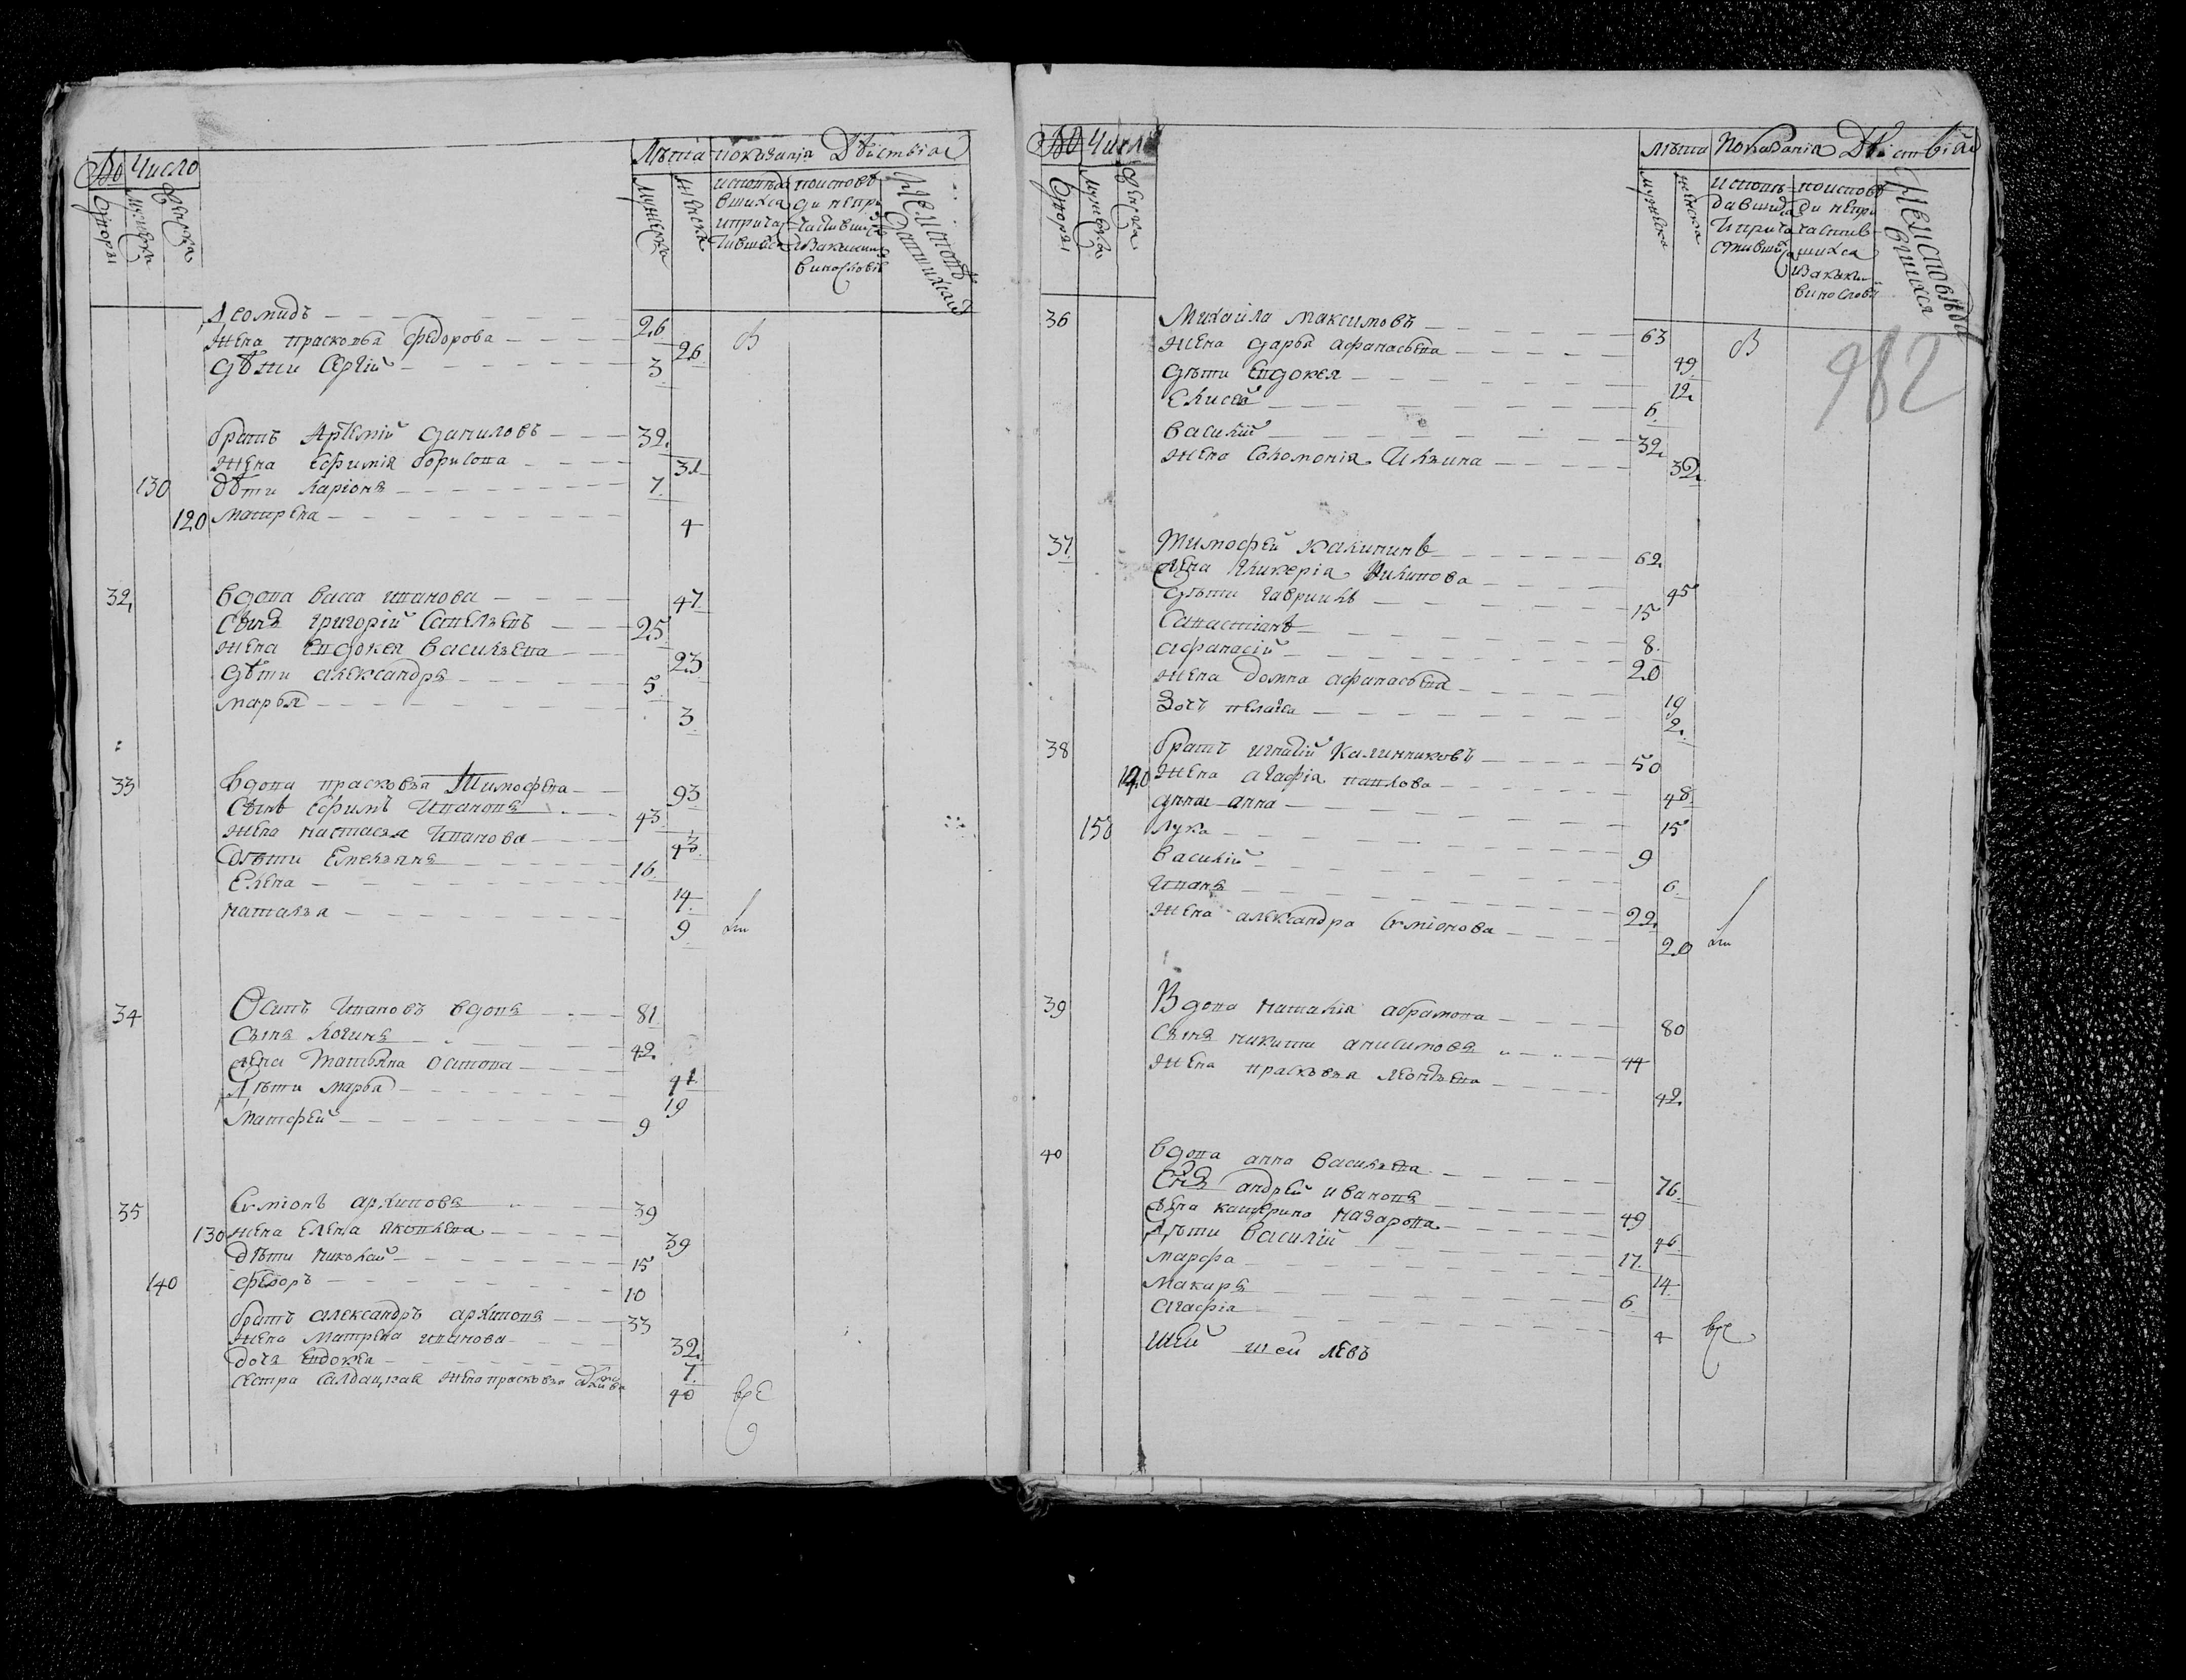 Во Число
Лѣта показанія Дѣйствіа
Дворы
мужеска
женска
мужеска
женска
исповѣда
вшихся
и прича
стившихся
по испов
ди непри
частивши
ся и за какимъ
винословіе
Не исповѣ
давшихся
Деомидъ 26
жена прасковья федорова 26
дѣти Сергій 3
братъ Артемій даниловъ 32
жена Ефимія борисова 31
130 дѣти Ларіонъ 7
120 матрена 4
32 вдова васса иванова 47
сынъ григорій Савельевъ 25
жена Евдокея васильева 23
дѣти александръ 5
марья 3
33 вдова прасковья Тимофева 93
сынъ Ефимъ Ивановъ 43
жена настасья Иванова 43
дѣти Емельянъ 16
Елена 14
наталья 9
34 Осипъ Ивановъ вдовъ 81
сынъ Логинъ 42
жена Татьяна осипова 41
Дѣти марья 19
Матфей 9
35 Симіонъ архиповъ 39
130 жена Елена яковлева 39
дѣти николай 15
140 федоръ 10
братъ александръ архиповъ 33
жена Матрена иванова 32
дочь Евдокея 7
сестра салдацкая жена прасковья 40
Во Число
Лѣта Показания Дѣйствіа
Дворы
мужеска
женска
мужеска
женска
исповѣ
давшихся
и прича
стившихся
по испов
ди непри
частив
шихся
и за каким
винослові
Неисповѣда
вшихся
982
36 Михаила максимовъ 63
жена дарья афанасьева 49
дѣти Евдокея 12
Елисей 6
василій 32
жена Соломонія Ильина 32
37 Тимофей Калининъ 62
жена гликерія Филипова 45
дѣти гаврилъ 15
Савастіанъ 8
афанасій 20
жена домна афанасьева 19
дочь пелагея 2
38 братъ игнатій Калинниковъ 50
140 жена агафія павлова 48
дѣти анна 15
150 лука 9
василій 6
Иванъ 22
жена александра Симіонова 20
39 Вдова наталія абрамова 80
сынъ никита анисимовъ 44
жена прасковья леонтьева 42
40 вдова анна васильева 76
сынъ андрей ивановъ 49
жена катерина назарова 46
Дѣти василій 17
марфа 14
Макаръ 6
агафія 4